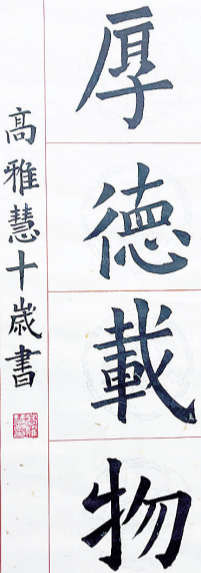 厚德載物
高雅慧十歲書